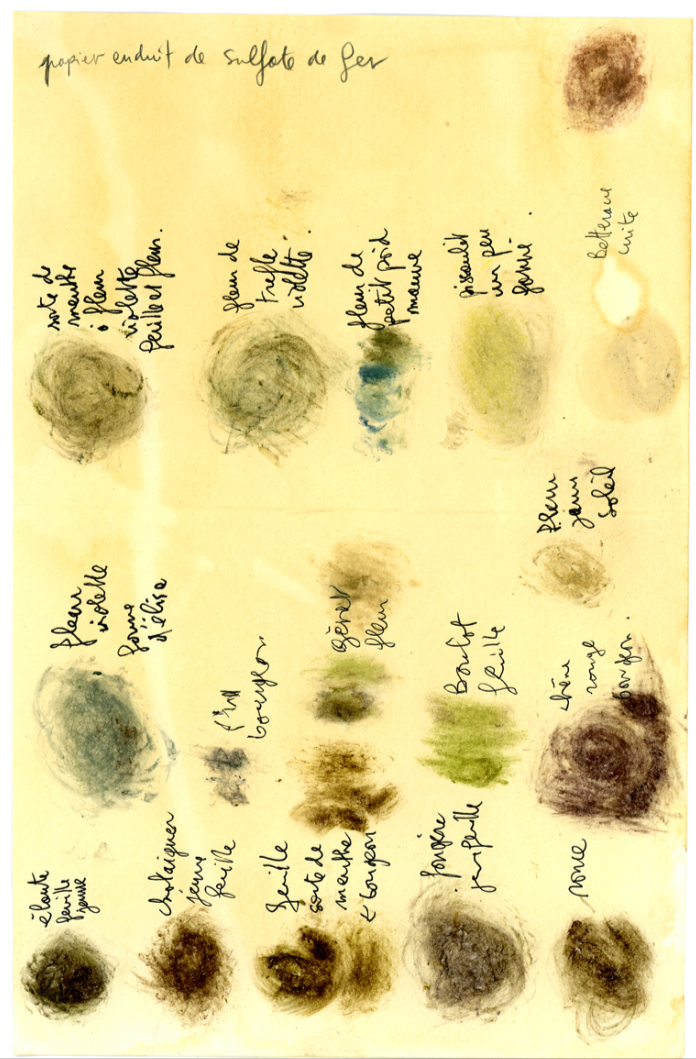 papier enduit de sulfate de fer
sorte de
menthe
à fleur
violette
feuille et fleur.
fleur de
trefle
violette.
fleur de
petit poid
mauve
pissenlit
un peu
fanné.
Betterave
cuite
fleur
violette
forme
d'élise
bourgeon
gênet
fleur
Boulot
feuille
fleur
jaune
Soleil
chêne
rouge
bourgeon.
feuille
jeune
chataigner
jeune
feuille
feuille
sorte de
menthe
et bourgeon
fougère
jeune feuille
ronce